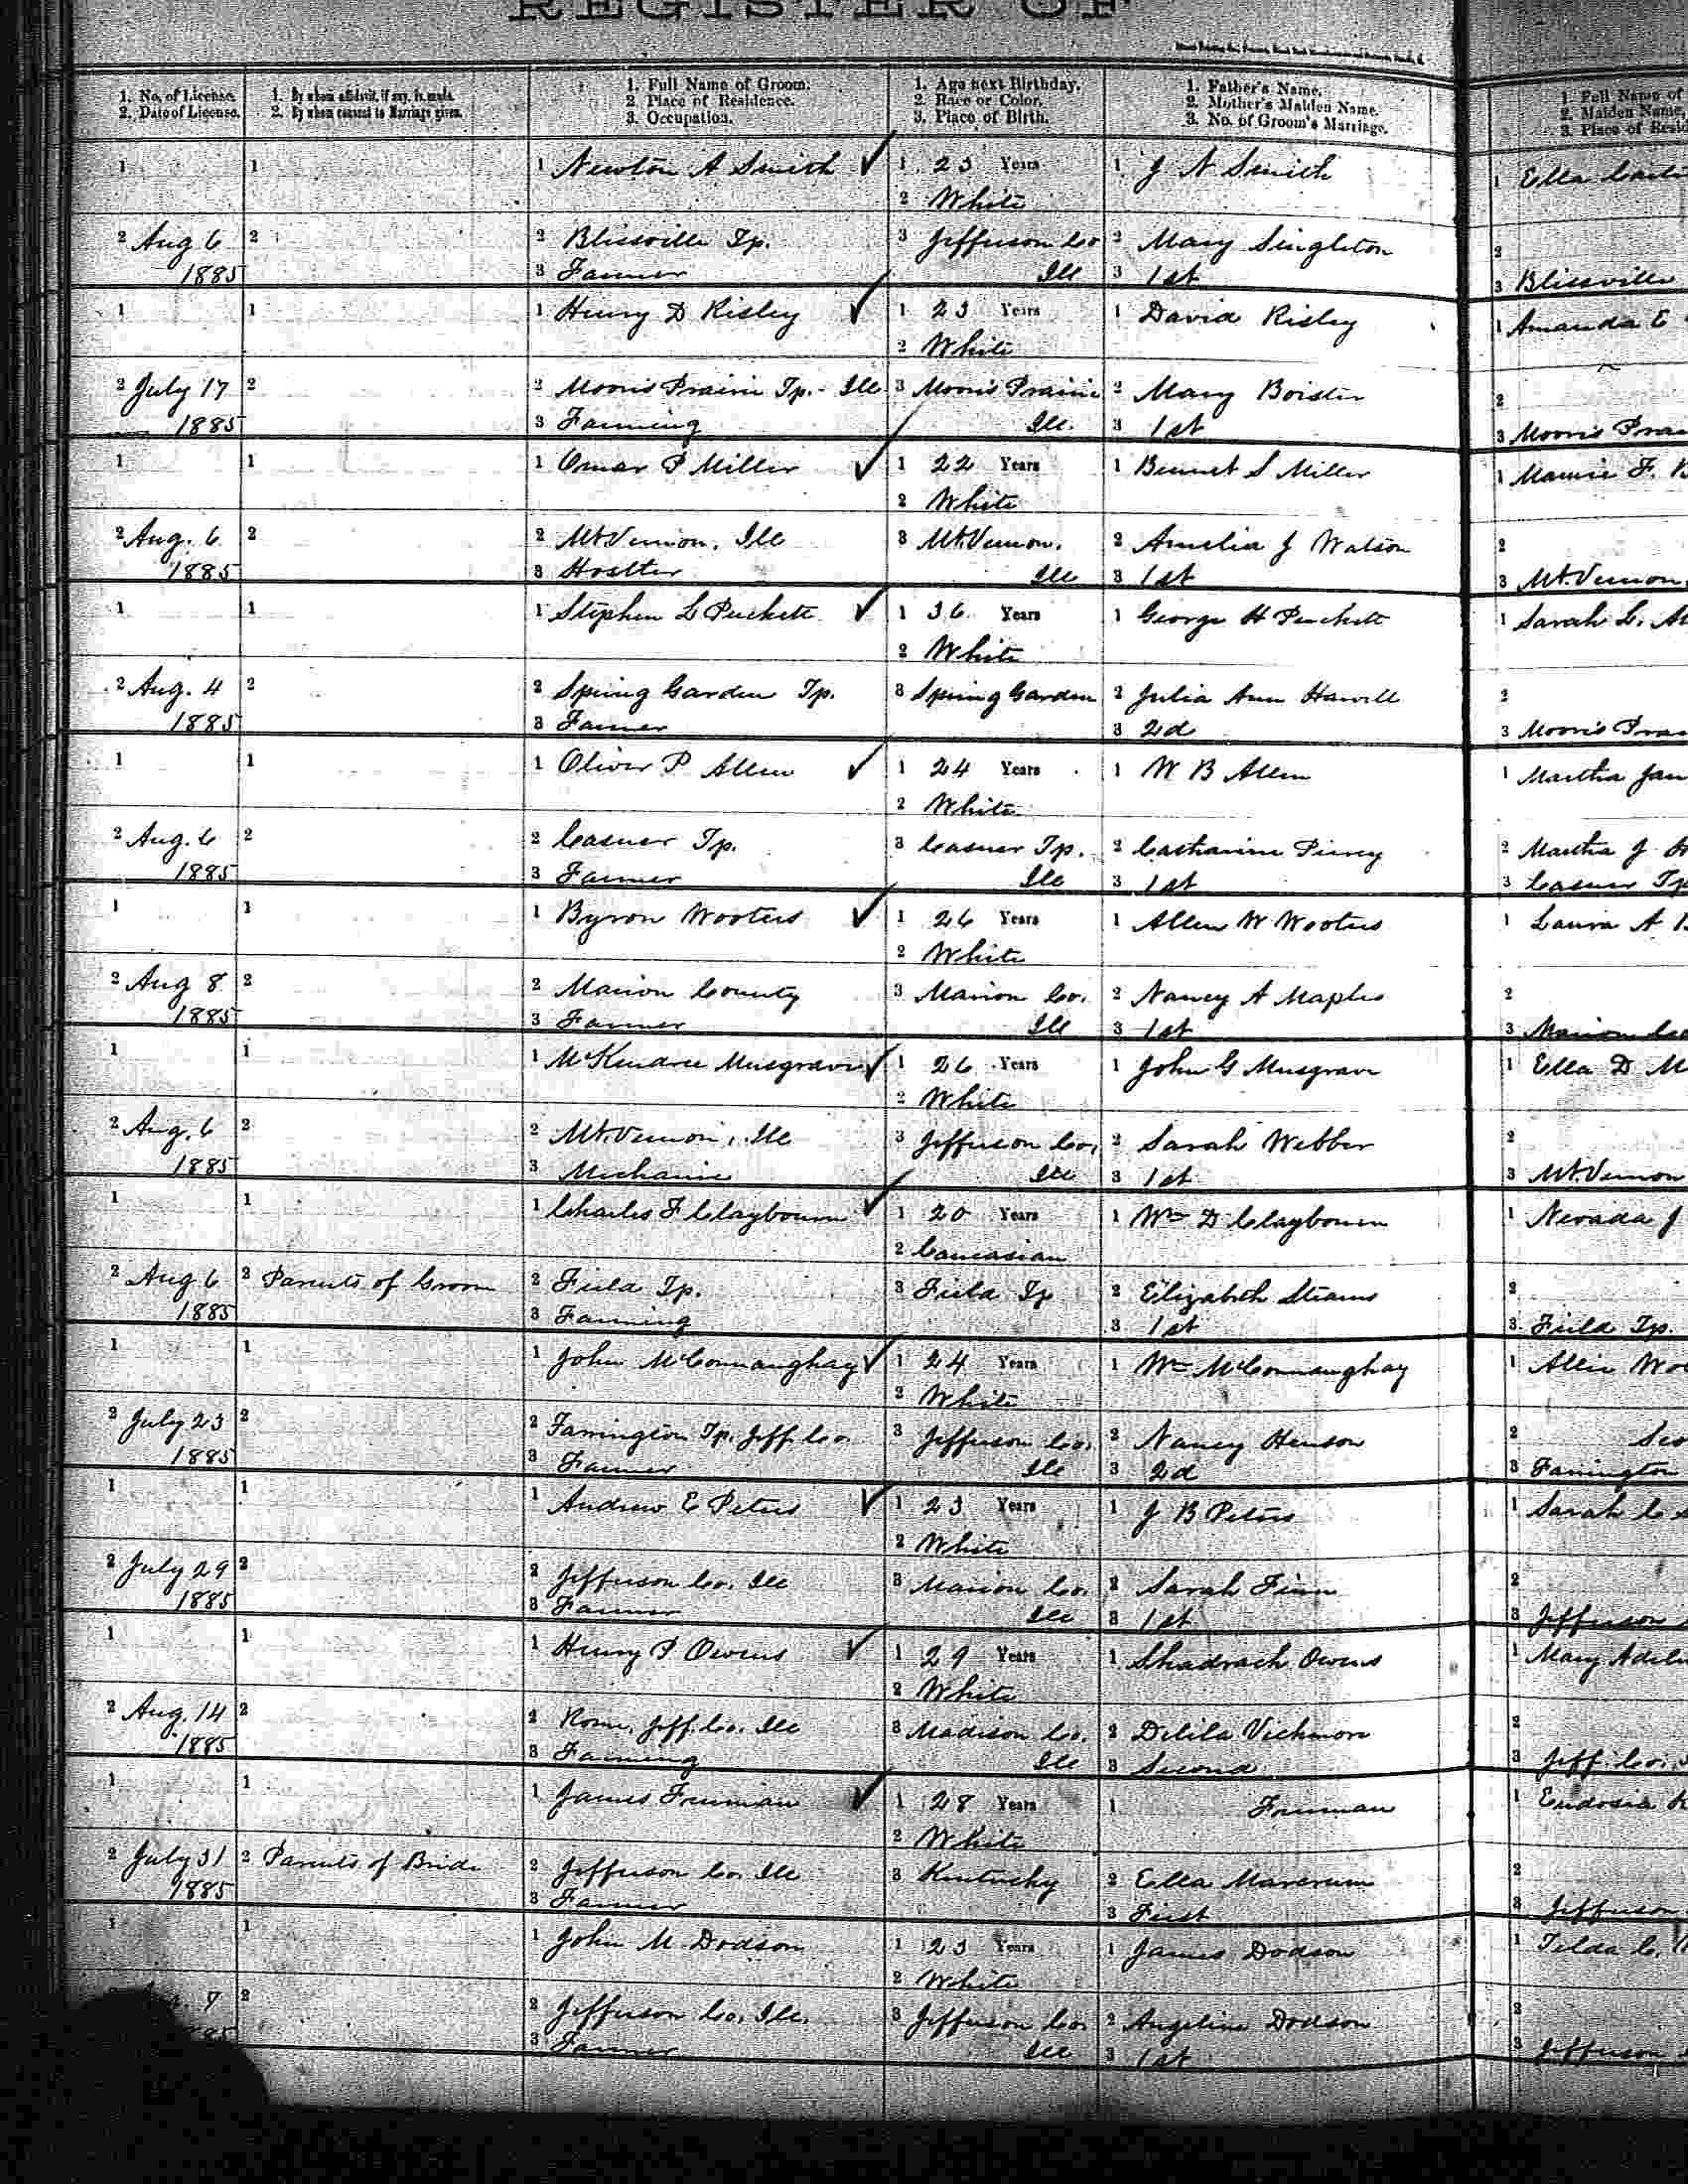 REGISTER OF
1. No. of License.
2. Date of License.
1. By whom affidavit, if any, is made.
2. By whom consent to Marriage given.
1. Full Name of Groom.
2. Place of Residence.
3. Occupation.
1. Age next Birthday.
2. Race or Color.
3. Place of Birth.
1. Father's Name.
2. Mother's Maiden Name.
3. No. of Groom's Marriage.
1. Full Name of
2. Maiden Name,
3. Place of Resid
1 1 1 Newton A Smith ✓ 1 23 Years 1 J N Smith 1 Ella
2 White
2 Aug 6 2 2 Blissville Tp. 3 Jefferson Co 2 Mary Singleton 2
1885 3 Farmer Ill 3 1st 3 Blissville
1 1 1 Henry D Risley ✓ 1 23 Years 1 David Risley 1 Amanda E
2 White
2 July 17 2 2 Moore's Prairie Tp. - Ill 3 Moore's Prairie 2 Mary Boister 2
1885 3 Farming Ill. 3 1st 3 Moore's Prai
1 1 1 Omar P Miller ✓ 1 22 Years 1 Bennet S Miller 1 Mamie F.
2 White
2 Aug. 6 2 2 Mt. Vernon, Ill 3 Mt. Vernon, 2 Amelia J Watson 2
1885 3 Hostler Ill 3 1st 3 Mt. Vernon,
1 1 1 Stephen L Puckett ✓ 1 36 Years 1 George H Puckett 1 Sarah L. M
2 White
2 Aug. 4 2 2 Spring Garden Tp. 3 Spring Garden 2 Julia Ann Harvill 2
1885 3 Farmer 3 2d 3 Moore's Prai
1 1 1 Oliver P Allen ✓ 1 24 Years 1 W B Allen 1 Martha Jan
2 White
2 Aug. 6 2 2 Casner Tp. 3 Casner Tp. 2 Catharine Piercy 2 Martha J
1885 3 Farmer Ill 3 1st 3 Casner Tp
1 1 1 Byron Wooters ✓ 1 26 Years 1 Allen W Wooters 1 Laura A
2 White
2 Aug 8 2 2 Marion County 3 Marion Co. 2 Nancy A Maples 2
1885 3 Farmer Ill 3 1st 3 Marion Co
1 1 1 McKendree Musgrave ✓ 1 26 Years 1 John G Musgrave 1 Ella D M
2 White
2 Aug. 6 2 2 Mt. Vernon, Ill 3 Jefferson Co, 2 Sarah Webber 2
1885 3 Mechanic Ill 3 1st 3 Mt. Vernon
1 1 1 Charles F Claybourn ✓ 1 20 Years 1 Wm D Claybourn 1 Nevada J
2 Caucasian
2 Aug 6 2 Parents of Groom 2 Field Tp. 3 Field Tp 2 Elizabeth Stearns 2
1885 3 Farming 3 1st 3 Field Tp.
1 1 1 John McConnaughay ✓ 1 24 Years 1 Wm McConnaughay 1 Allie Wo
2 White
2 July 23 2 2 Farrington Tp. Jeff. Co. 3 Jefferson Co. 2 Nancy Henson 2
1885 3 Farmer Ill 3 2d 3 Farrington
1 1 1 Andrew E Peters ✓ 1 23 Years 1 J B Peters 1 Sarah C
2 White
2 July 29 2 2 Jefferson Co. Ill 3 Marion Co. 2 Sarah Finn 2
1885 3 Farmer Ill 3 1st 3 Jefferson
1 1 1 Henry P Owens ✓ 1 29 Years 1 Shadrach Owens 1 Mary Adeli
2 White
2 Aug. 14 2 2 Rome, Jeff. Co. Ill 3 Madison Co. 2 Delila Vickmon 2
1885 3 Farming Ill 3 Second 3 Jeff. Co.
1 1 1 James Freeman ✓ 1 28 Years 1 Freeman 1 Eudosia
2 White
2 July 31 2 Parents of Bride 2 Jefferson Co. Ill 3 Kentucky 2 Ella Marcrum 2
1885 3 Farmer 3 First 3 Jefferson
1 1 1 John M Dodson 1 23 Years 1 James Dodson 1 Telda C.
2 White
7 2 2 Jefferson Co. Ill. 3 Jefferson Co. 2 Angeline Dodson 2
85 3 Farmer Ill 3 1st 3 Jefferson